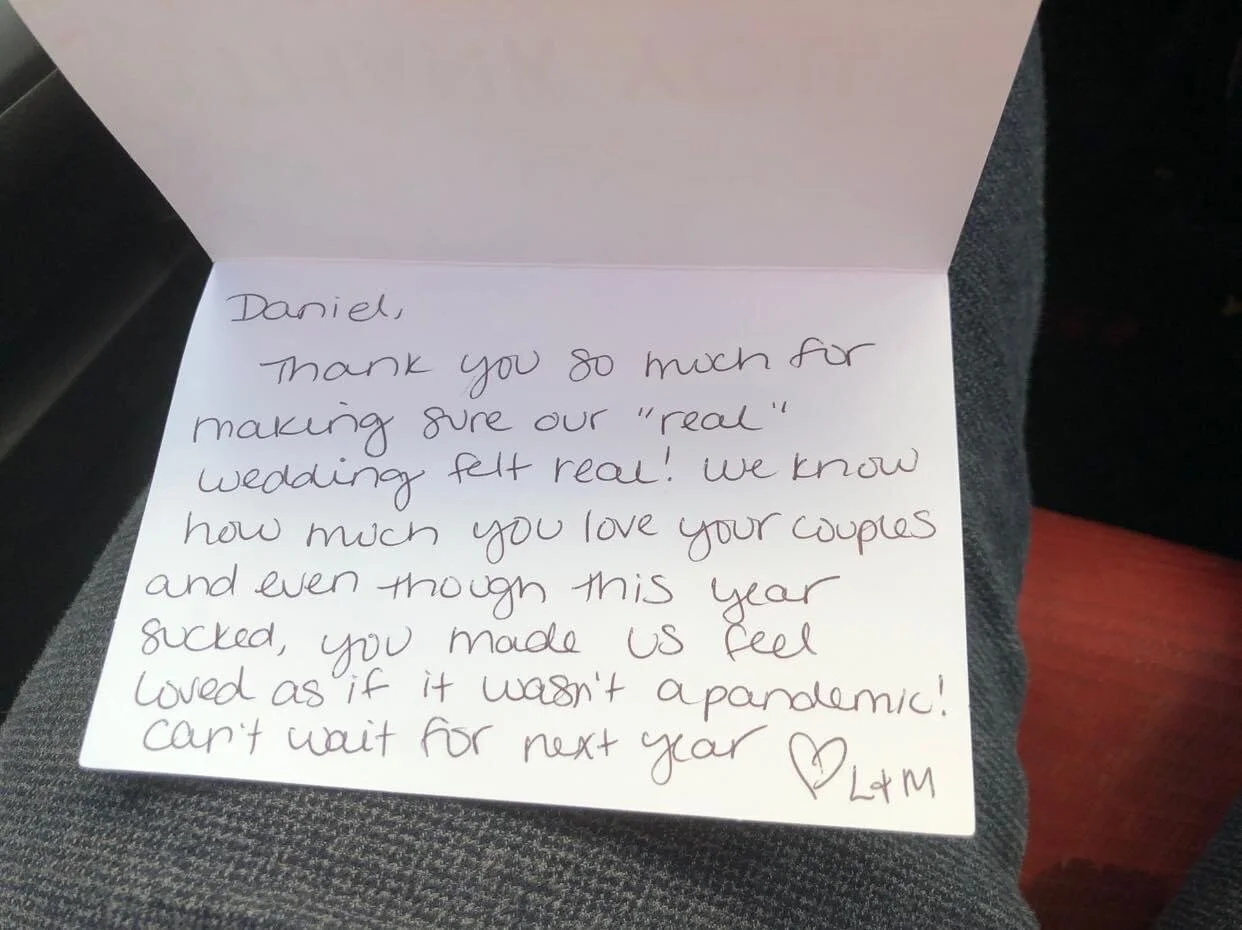 Daniel,
Thank you so much for
making sure our "real"
wedding felt real! We know
how much you love your couples
and even though this year
sucked, you made us feel
loved as if it wasn't a pandemic!
Can't wait for next year ♡ L+M